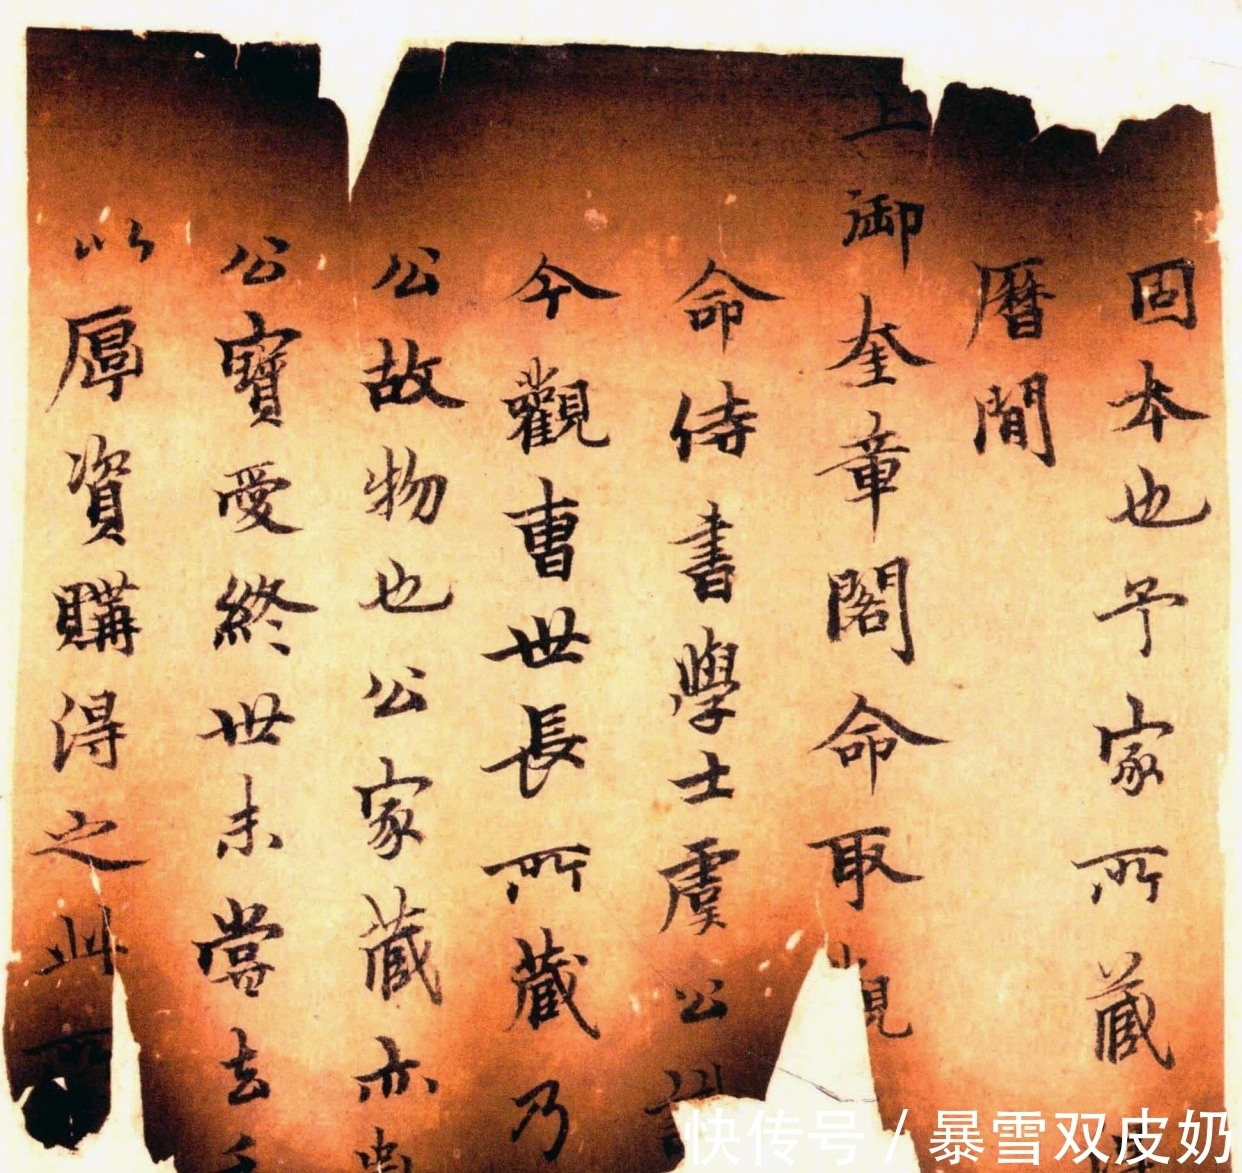 固本也予家所藏
曆間
上御奎章閣命取觀
命侍書學士虞公
今觀曺世長所藏乃
公故物也公家藏亦
公寶愛終世未嘗去手
以厚資購得之此所
快传号/暴雪双皮奶